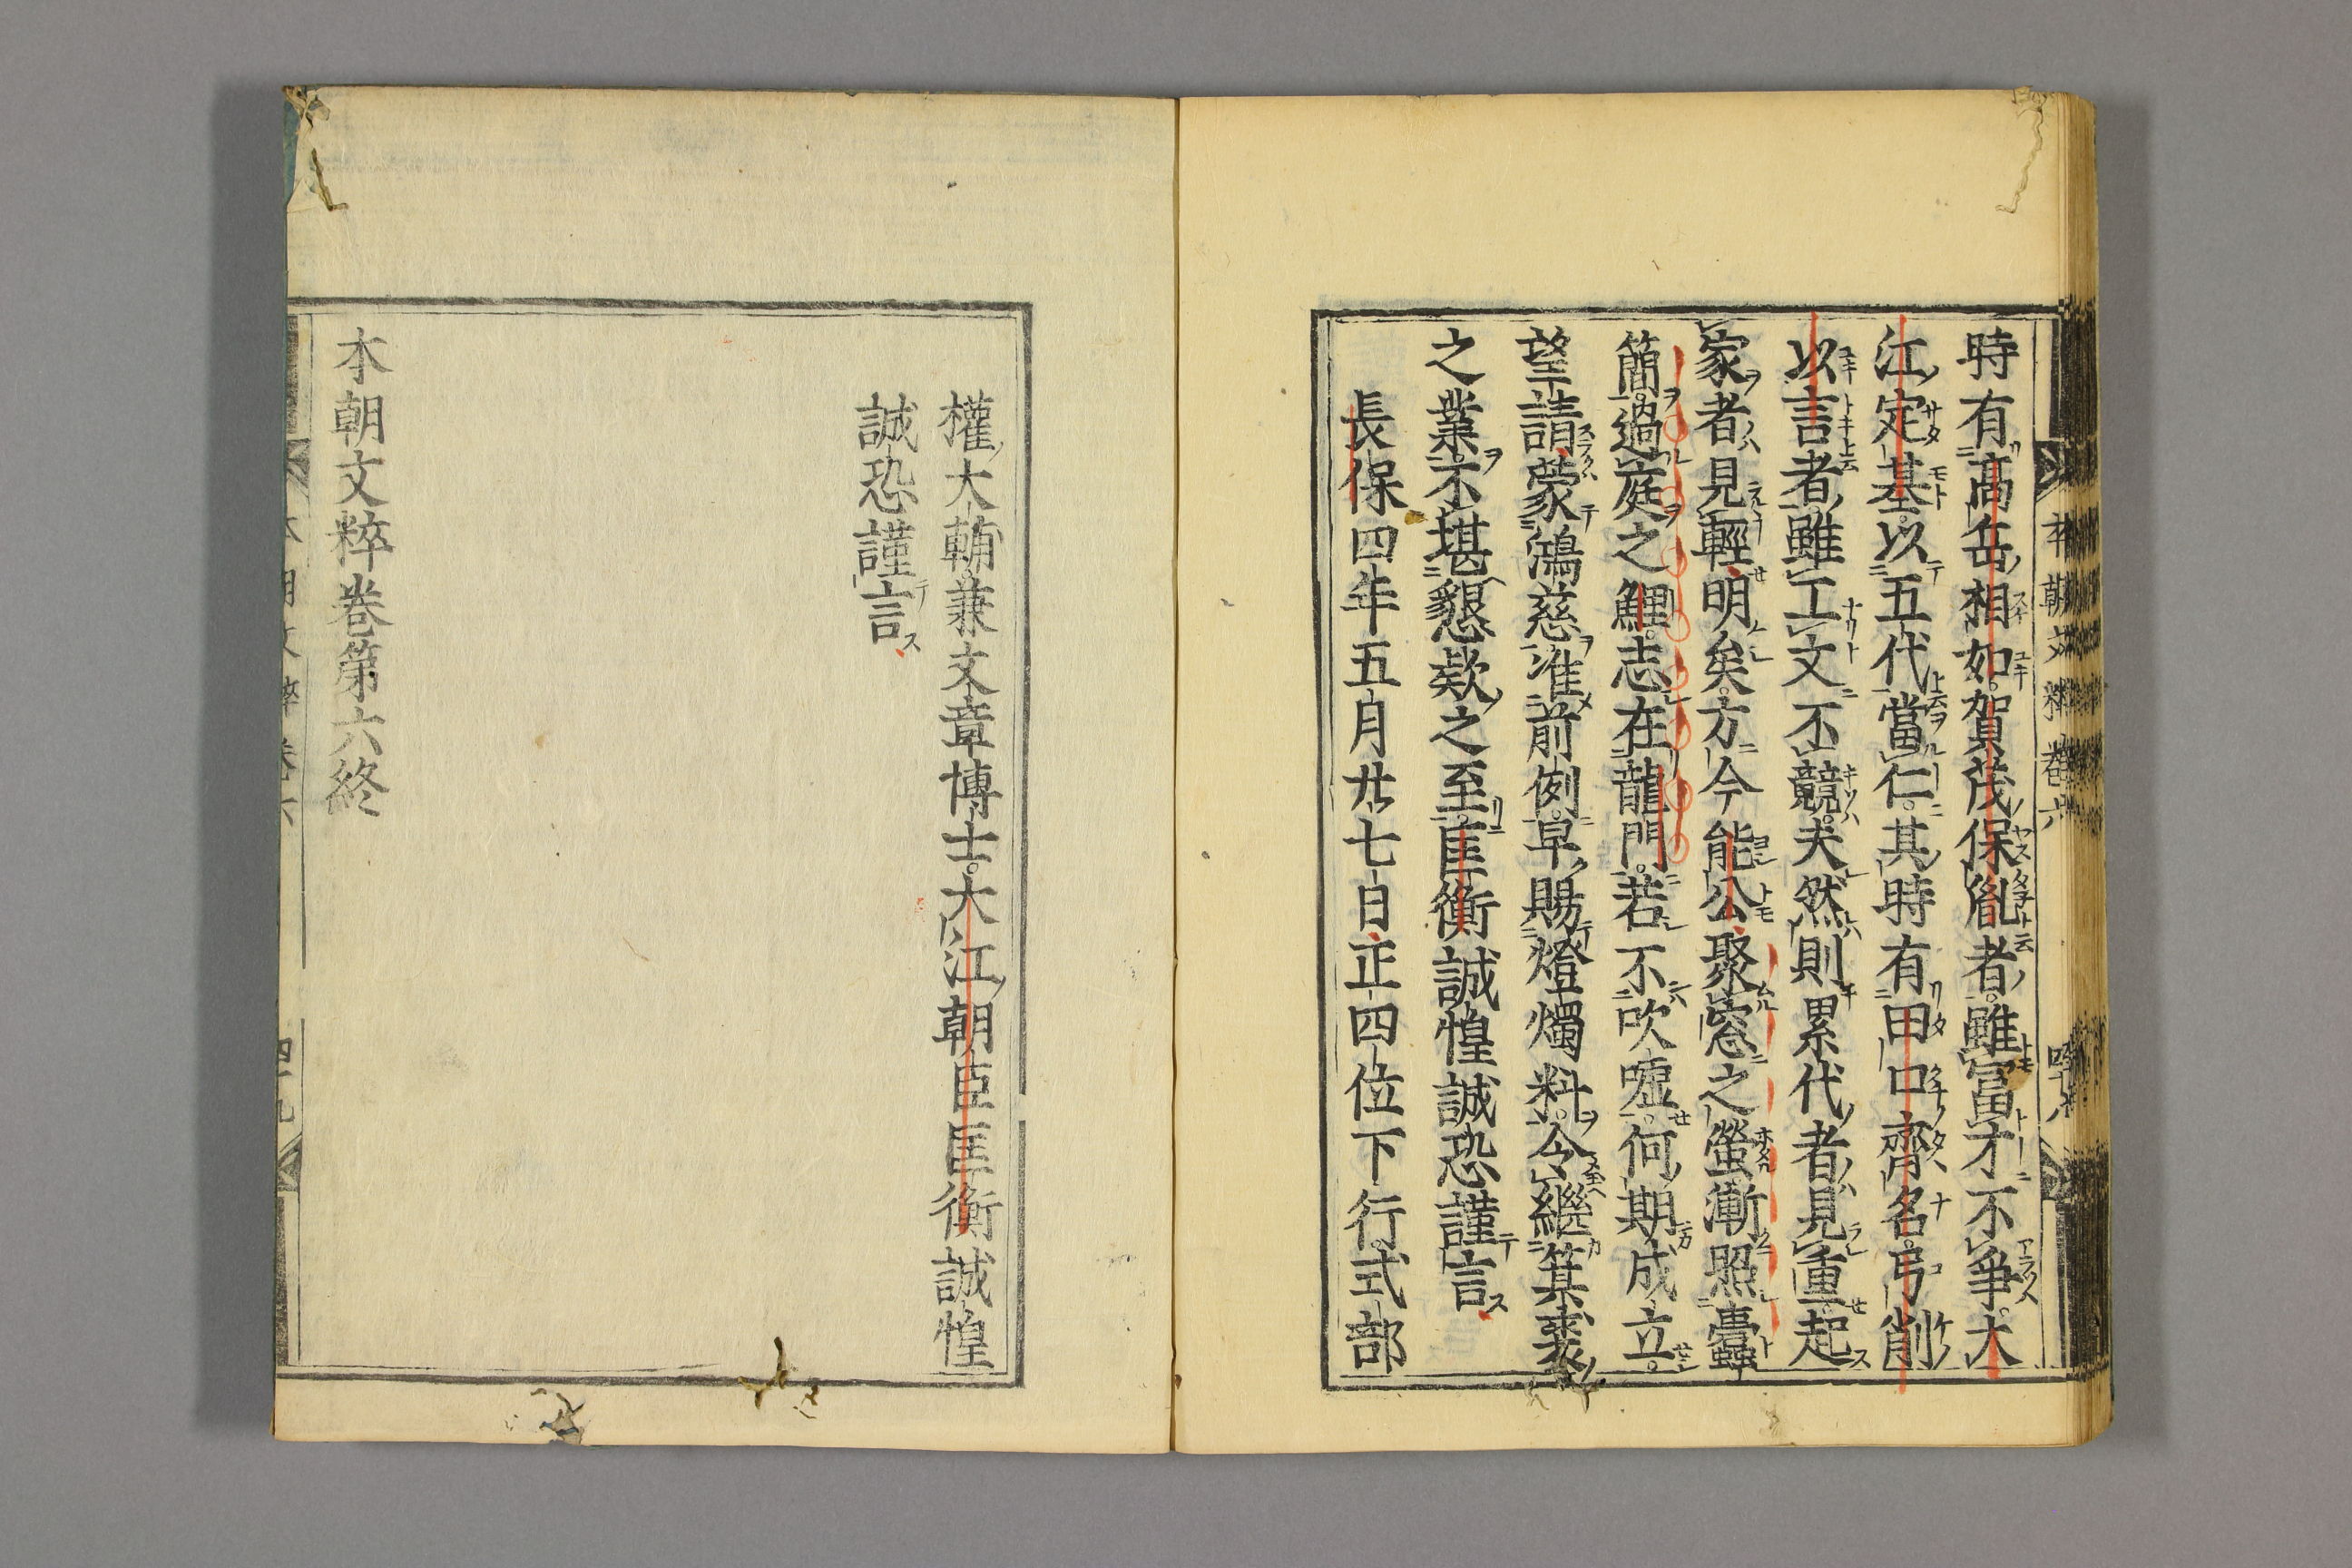 時有高岳相如。賀茂保胤者。雖富才不爭。大
江定基。以五代當仁。其時有田口齊名。弓削
以言者。雖工文不競。夫然則累代者見重。起
家者見輕明矣。方今能公聚窓之螢漸照。蠹
簡。過庭之鯉。志在龍門。若不吹嘘。何期成立。
望請蒙鴻慈。准前例。早賜燈燭料。令繼箕裘
之業。不堪懇欵之至。匡衡誠惶誠恐謹言
長保四年五月廿七日正四位下行式部
權大輔。兼文章博士。大江朝臣匡衡誠惶
誠恐謹言
本朝文粹卷第六終
本朝文粹 卷六